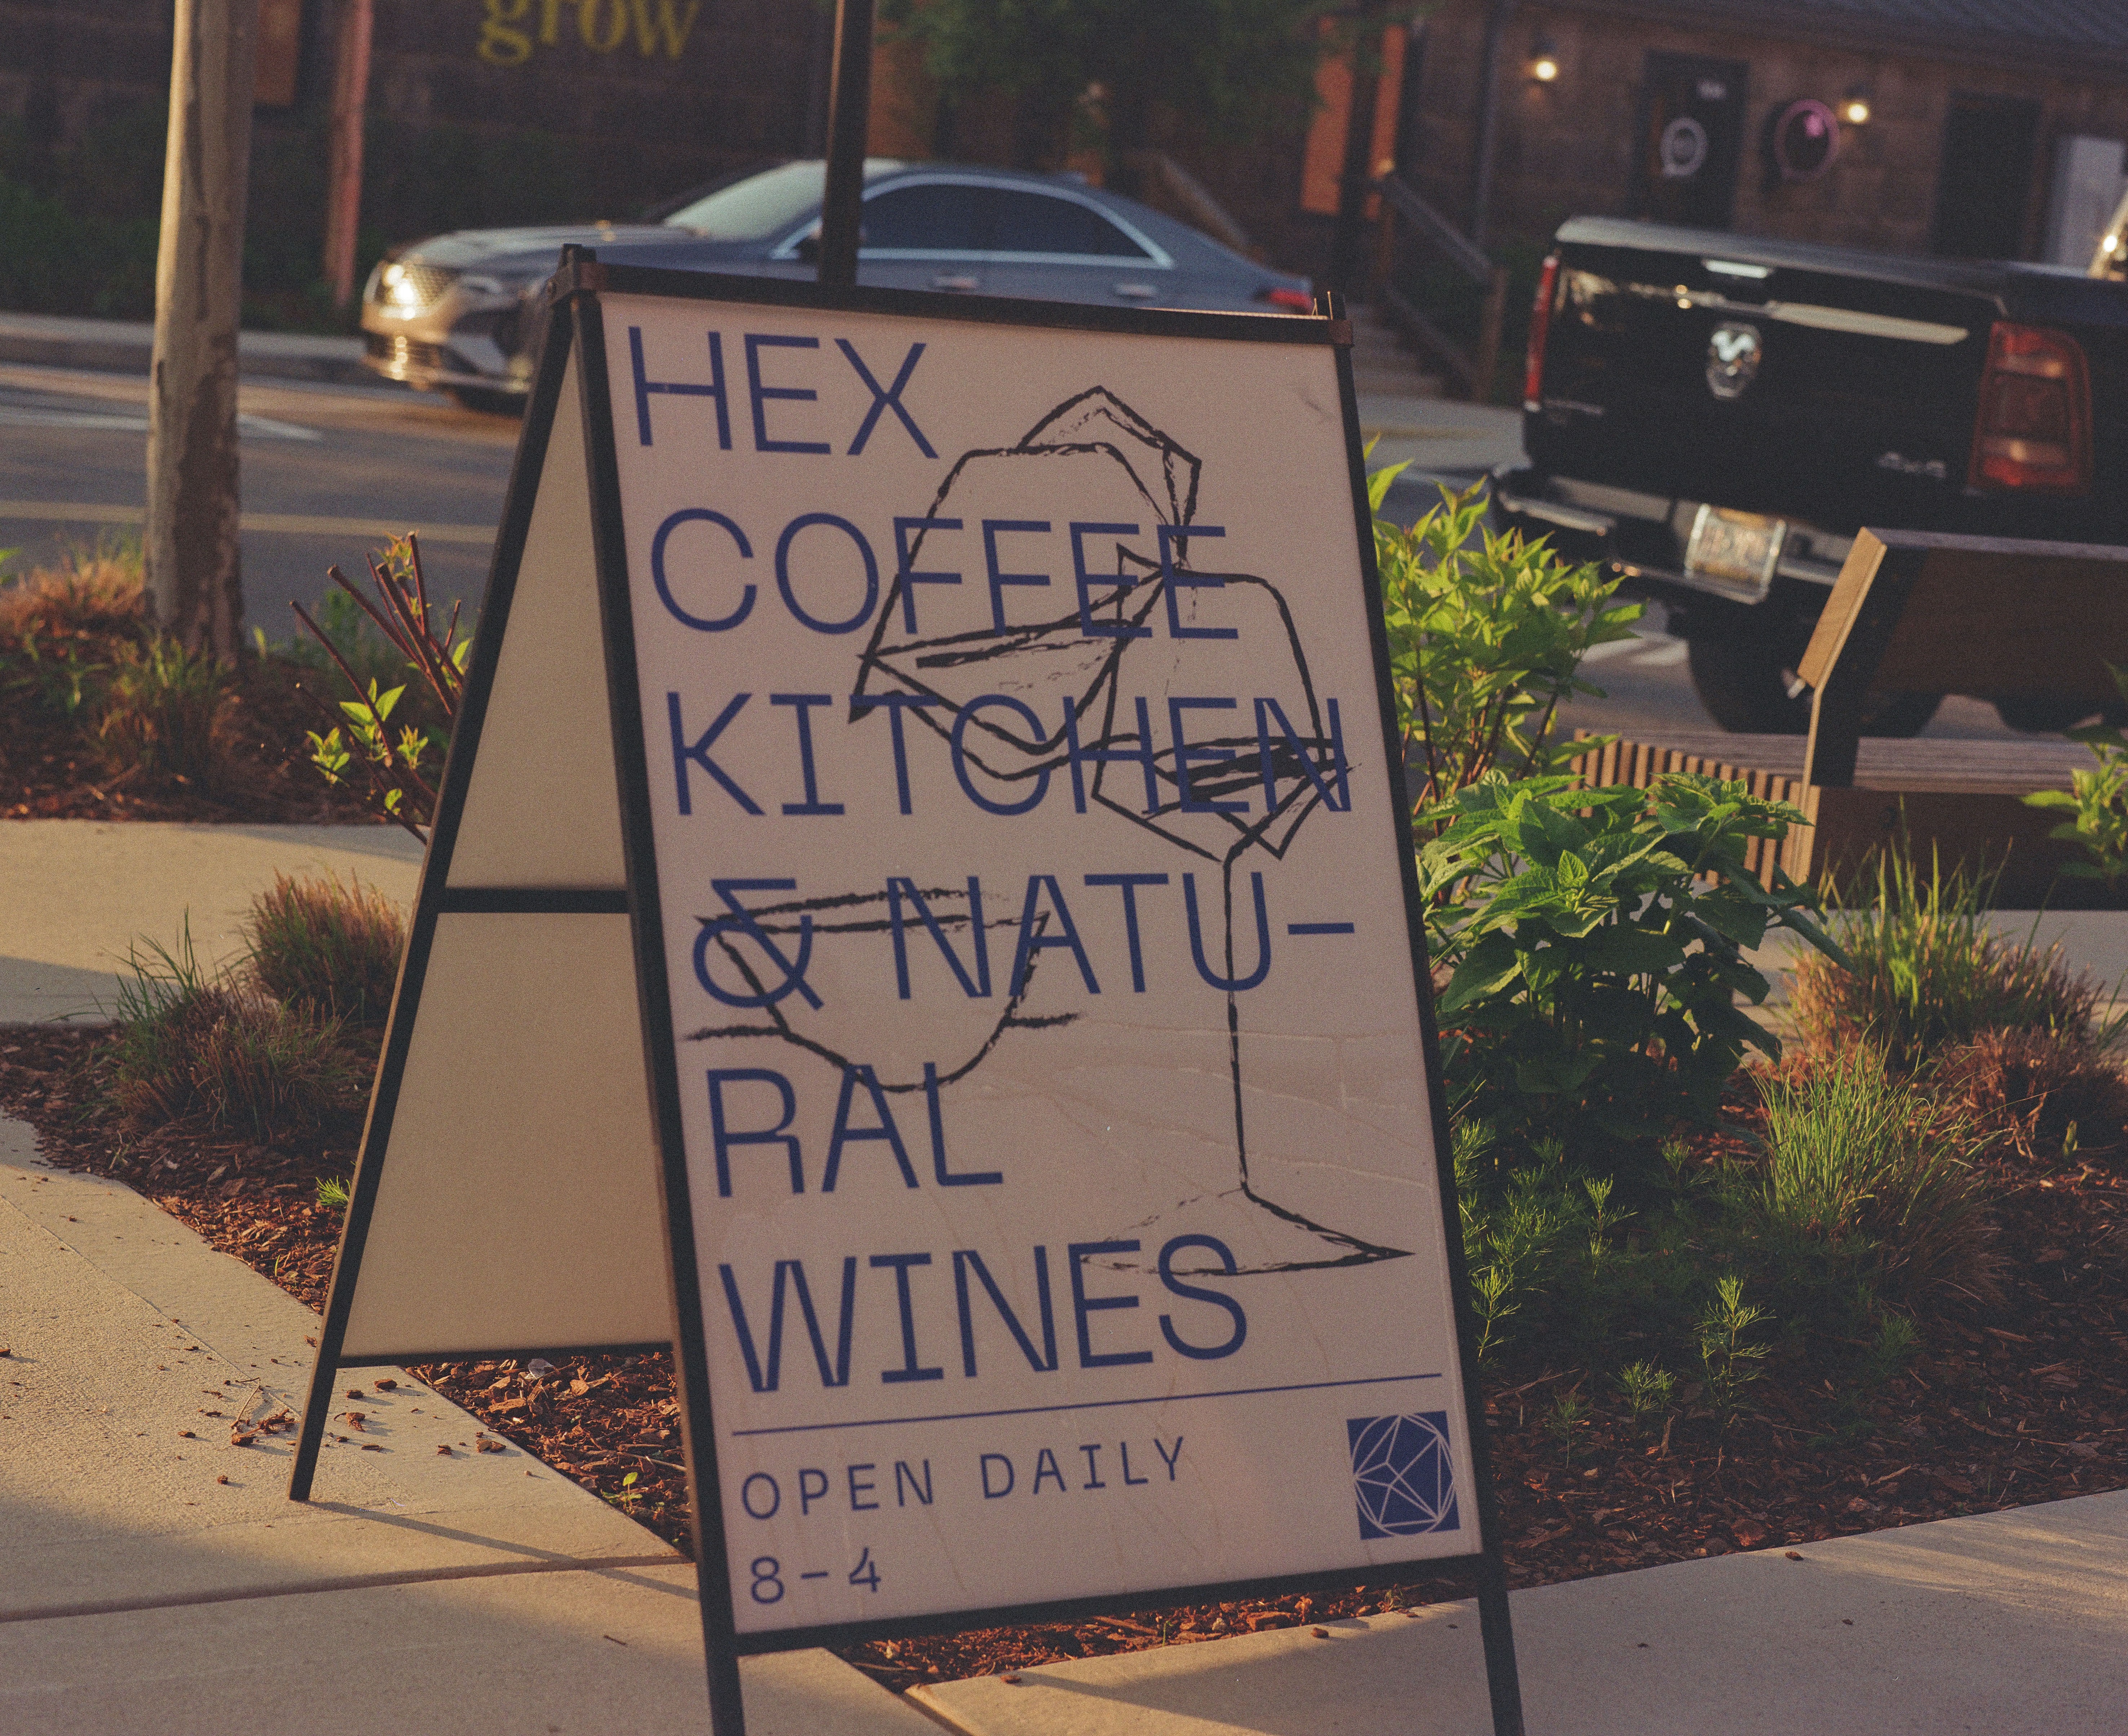 grow
HEX
COFFEE
KITCHEN
& NATU-
RAL
WINES
OPEN DAILY
8-4
4x4